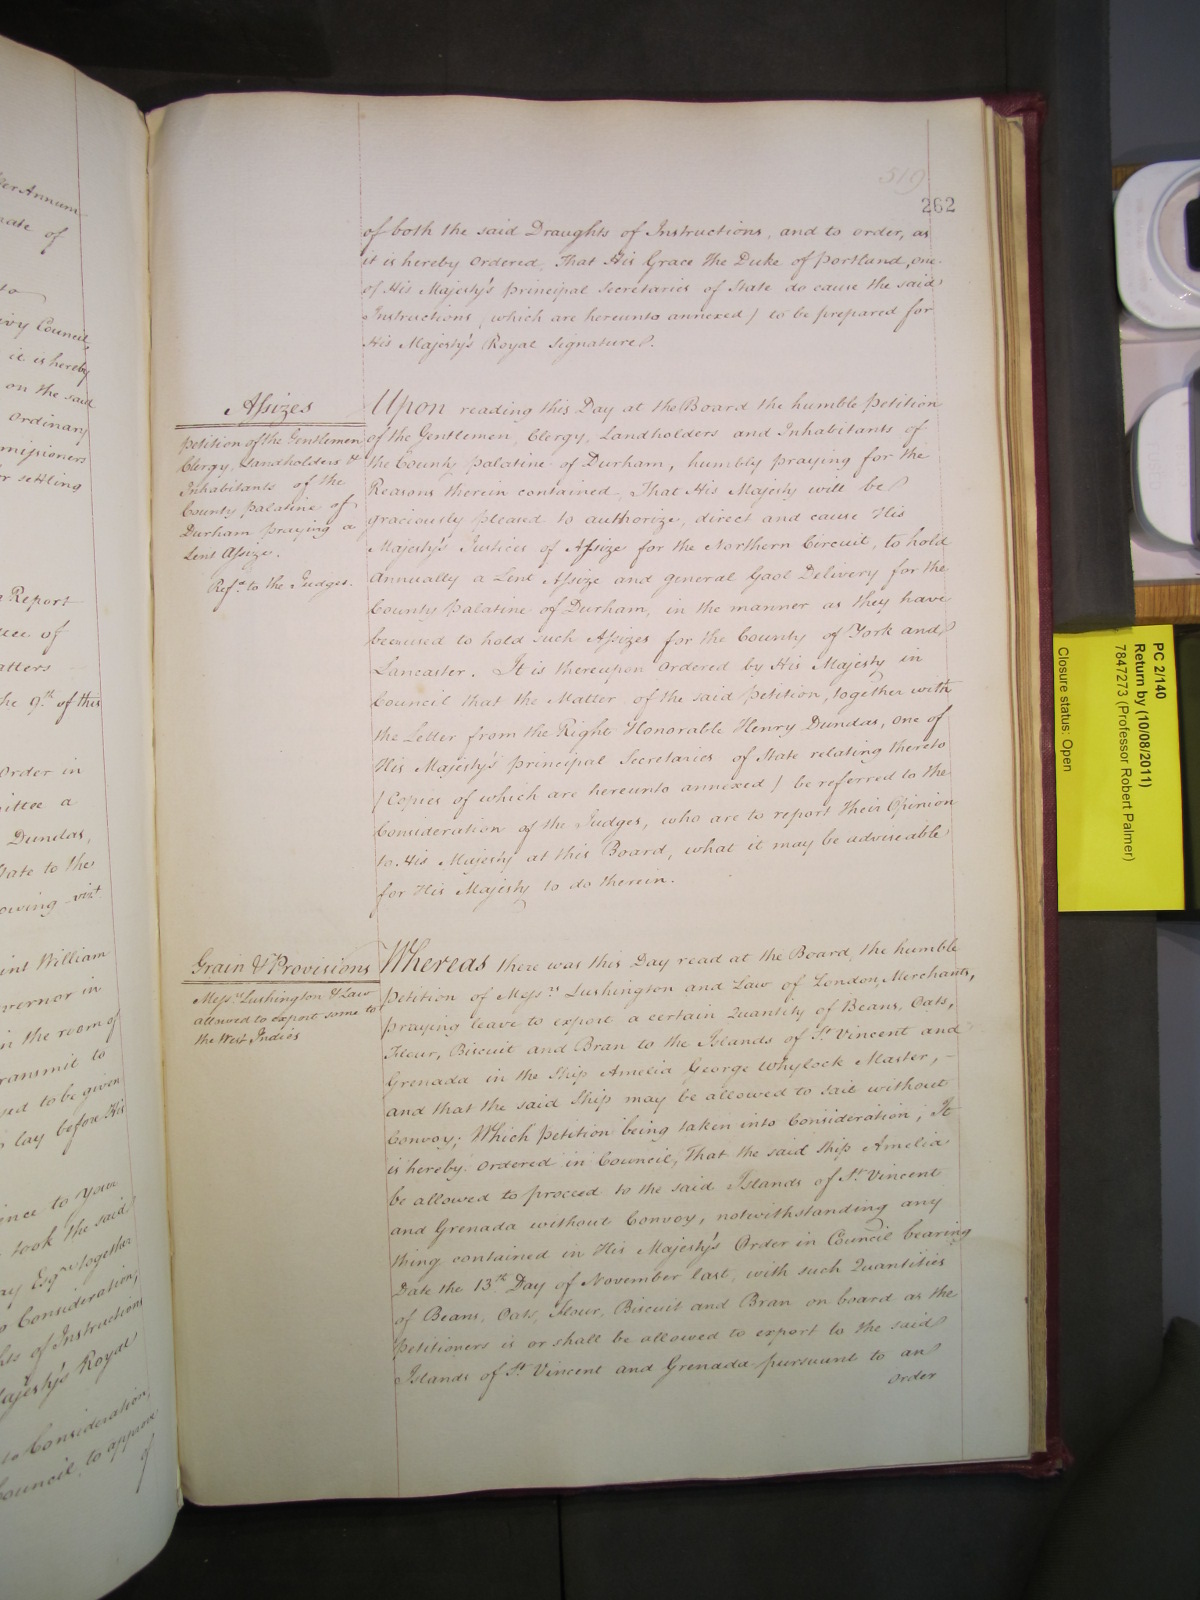 per Annum
nate of
to
ivy Council,
it is hereby
on the said
Ordinary
mmissioners
r settling
Report
tee of
atters
he 9th of this
Order in
mittee a
Dundas,
State to the
owing vizt
int William
vernor in
in the room of
ransmit to
sed to be given
lay before His
ince to your
took the said
ay Esqr together
Consideration,
hts of Instructions
Majesty's Royal
Consideration,
Council, to approve
of
519
262
of both the said Draughts of Instructions, and to order, as
it is hereby ordered, That His Grace the Duke of Portland, one
of His Majesty's principal Secretaries of State do cause the said
Instructions (which are hereunto annexed) to be prepared for
His Majesty's Royal Signature.
Assizes
Petition of the Gentlemen
Clergy, Landholders &
Inhabitants of the
County Palatine of
Durham praying a
Lent Assize.
Refd to the Judges.
Upon reading this Day at the Board the humble Petition
of the Gentlemen, Clergy, Landholders and Inhabitants of
the County Palatine of Durham, humbly praying for the
Reasons therein contained, That His Majesty will be
graciously pleased to authorize, direct and cause His
Majesty's Justices of Assize for the Northern Circuit, to hold
annually a Lent Assize and general Gaol Delivery for the
County Palatine of Durham, in the manner as they have
been used to hold such Assizes for the County of York and
Lancaster. It is thereupon ordered by His Majesty in
Council that the Matter of the said Petition, together with
the Letter from the Right Honorable Henry Dundas, one of
His Majesty's principal Secretaries of State relating thereto
(Copies of which are hereunto annexed) be referred to the
Consideration of the Judges, who are to report their Opinion
to His Majesty at this Board, what it may be adviseable
for His Majesty to do therein.
Grain & Provisions
Messrs Lushington & Law
allowed to export some to
the West Indies
Whereas there was this Day read at the Board, the humble
Petition of Messrs Lushington and Law of London, Merchants,
praying leave to export a certain Quantity of Beans, Oats,
Flour, Biscuit and Bran to the Islands of St Vincent and
Grenada in the Ship Amelia George Whylock Master,
and that the said Ship may be allowed to sail without
Convoy; Which Petition being taken into Consideration; It
is hereby ordered in Council, That the said Ship Amelia
be allowed to proceed to the said Islands of St Vincent
and Grenada without Convoy, notwithstanding any
thing contained in His Majesty's Order in Council bearing
Date the 13th Day of November last, with such Quantities
of Beans, Oats, Flour, Biscuit and Bran on board as the
Petitioners is or shall be allowed to export to the said
Islands of St Vincent and Grenada pursuant to an
order
PC 2/140
Return by (10/08/2011)
7847273 (Professor Robert Palmer)
Closure status: Open